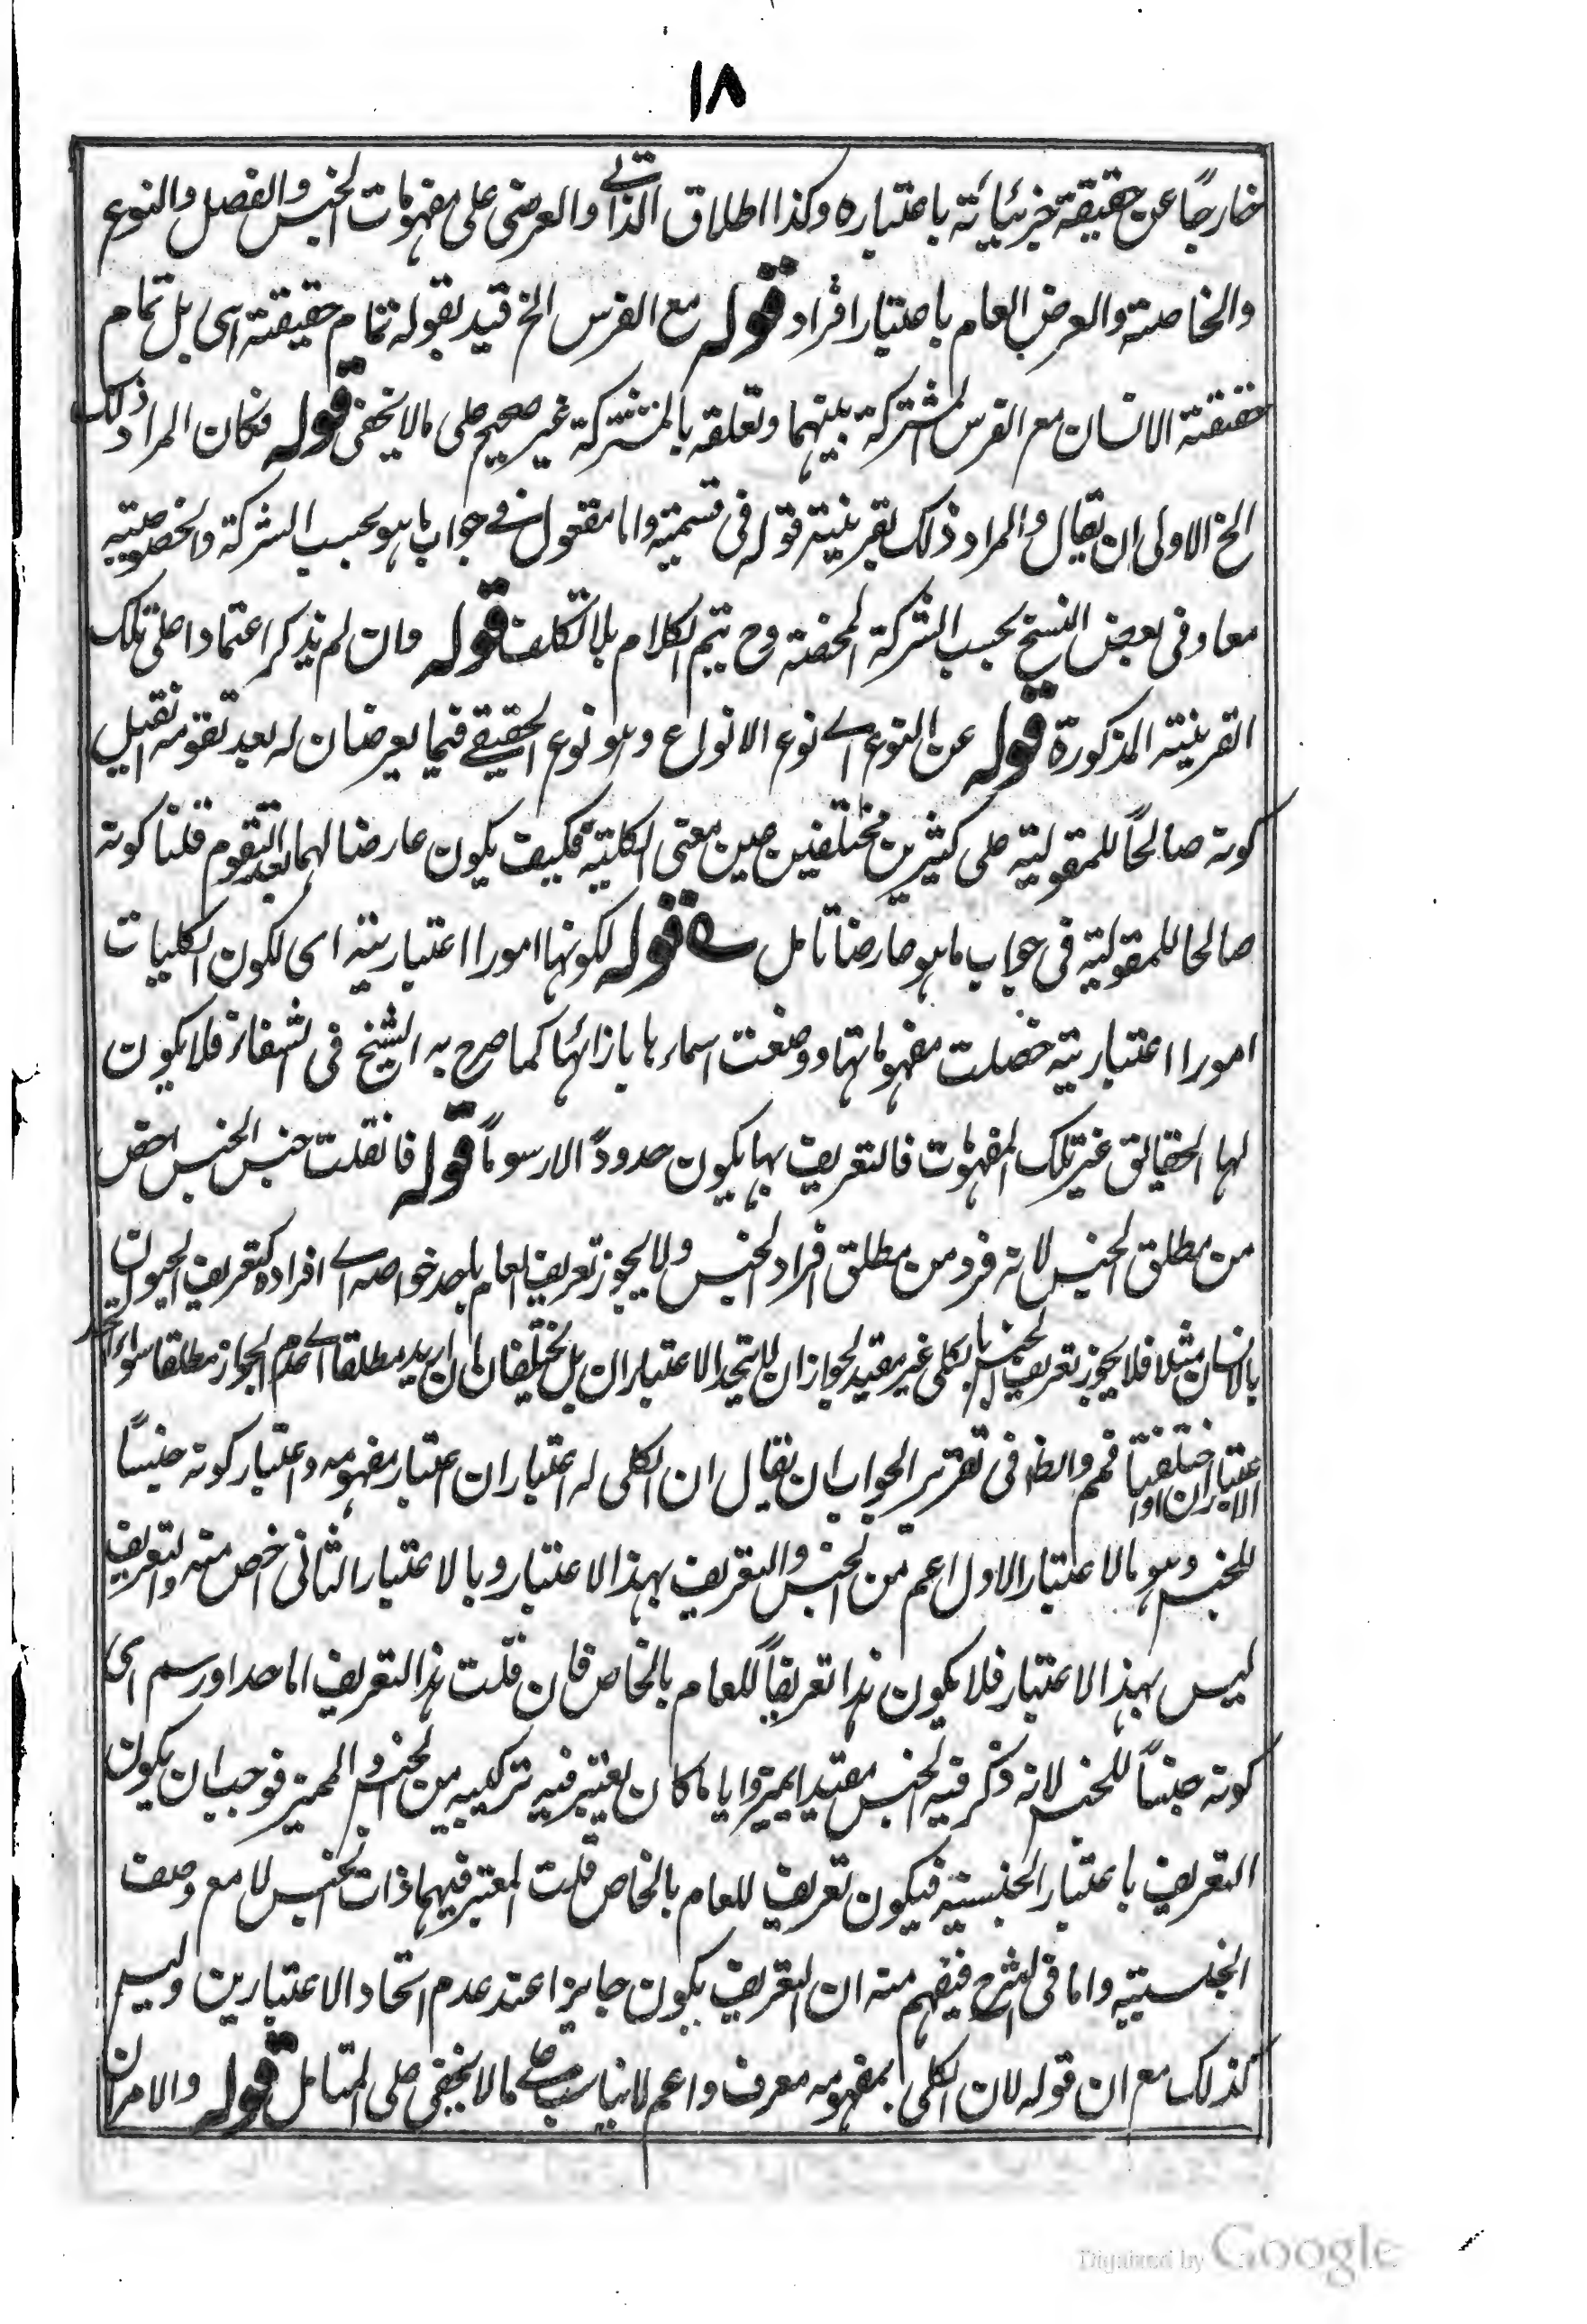 ١٨
خارجًا عن حقيقة جزئياته باعتباره وكذا اطلاق الذاتي والعرضي على مفهومات الجنس والفصل والنوع
والخاصة والعرض العام باعتبار افراد قوله مع الفرس الخ قيد بقوله تمام حقيقته اى بل تمام
حقيقة الانسان مع الفرس المشتركة بينهما وتعلقه بالمشتركة غير صحيح على ما لا يخفى قوله فكان المراد ذلك
الخ الاولى ان يقال والمراد ذلك بقرينة قوله فى قسمته واما مقول في جواب ما هو بحسب الشركة والخصوصية
معا وفى بعض النسخ بحسب الشركة المحضة وح يتم الكلام بلا تكلف قوله وان لم يذكر اعتمادا على تلك
القرينة المذكورة قوله عن النوع اے نوع الانواع وهو نوع الحقيقے فيما يعرضان له بعد تقومه قيل
كونه صالحًا للمقولية على كثيرين مختلفين عين معنى الكلية فكيف يكون عارضا لهما بعد التقوم قلنا كونه
صالحا للمقولية فى جواب ما هو عارضا تامل قوله لكونها امورا اعتبارية اى لكون الكليات
امورا اعتبارية حصلت مفهوماتها ووضعت اسماءها بازائها كما صرح به الشيخ فى الشفاء فلا يكون
لها الحقائق غير تلك المفهومات فالتعريف بها يكون حدودًا لا رسومًا قوله فان قلت جنس الجنس اخص
من مطلق الجنس لانه فرد من مطلق افراد الجنس ولا يجوز تعريف العام باحد خواصه اے افراده كتعريف الحيوان
بالانسان مثلا فلا يجوز تعريف الجنس بالكلى غير مقيد لجواز ان لا يتحد الاعتباران بل يختلفان ان اريد مطلقا اے عدم الجواز مطلقا سواء اتحد
الاعتباران او اختلفا فمم والظ فى تقرير الجواب ان يقال ان الكلى له اعتباران اعتبار مفهومه واعتبار كونه جنسًا
للجنس وهو بالاعتبار الاول اعم من الجنس والتعريف بهذا الاعتبار وبالاعتبار الثانى اخص منه والتعريف
ليس بهذا الاعتبار فلا يكون هذا تعريفًا للعام بالخاص فان قلت هذا التعريف اما حد او رسم اى
كونه جنسًا للجنس لانه ذكر فيه الجنس مقيدا بميز وايا ما كان يعتبر فيه تركيبه من الجنس والمميز فوجب ان يكون
التعريف باعتبار الجنسية فيكون تعريف للعام بالخاص قلت المعتبر فيهما ذات الجنس لا مع وصف
الجنسية واما فى الشرح فيفهم منه ان التعريف يكون جايزا عند عدم اتحاد الاعتبارين وليس
كذلك مع ان قوله لان الكلى بمفهومه معرف واعم لا يناسب على ما لا يخفى على المتامل قوله والامران
Digitized by Google